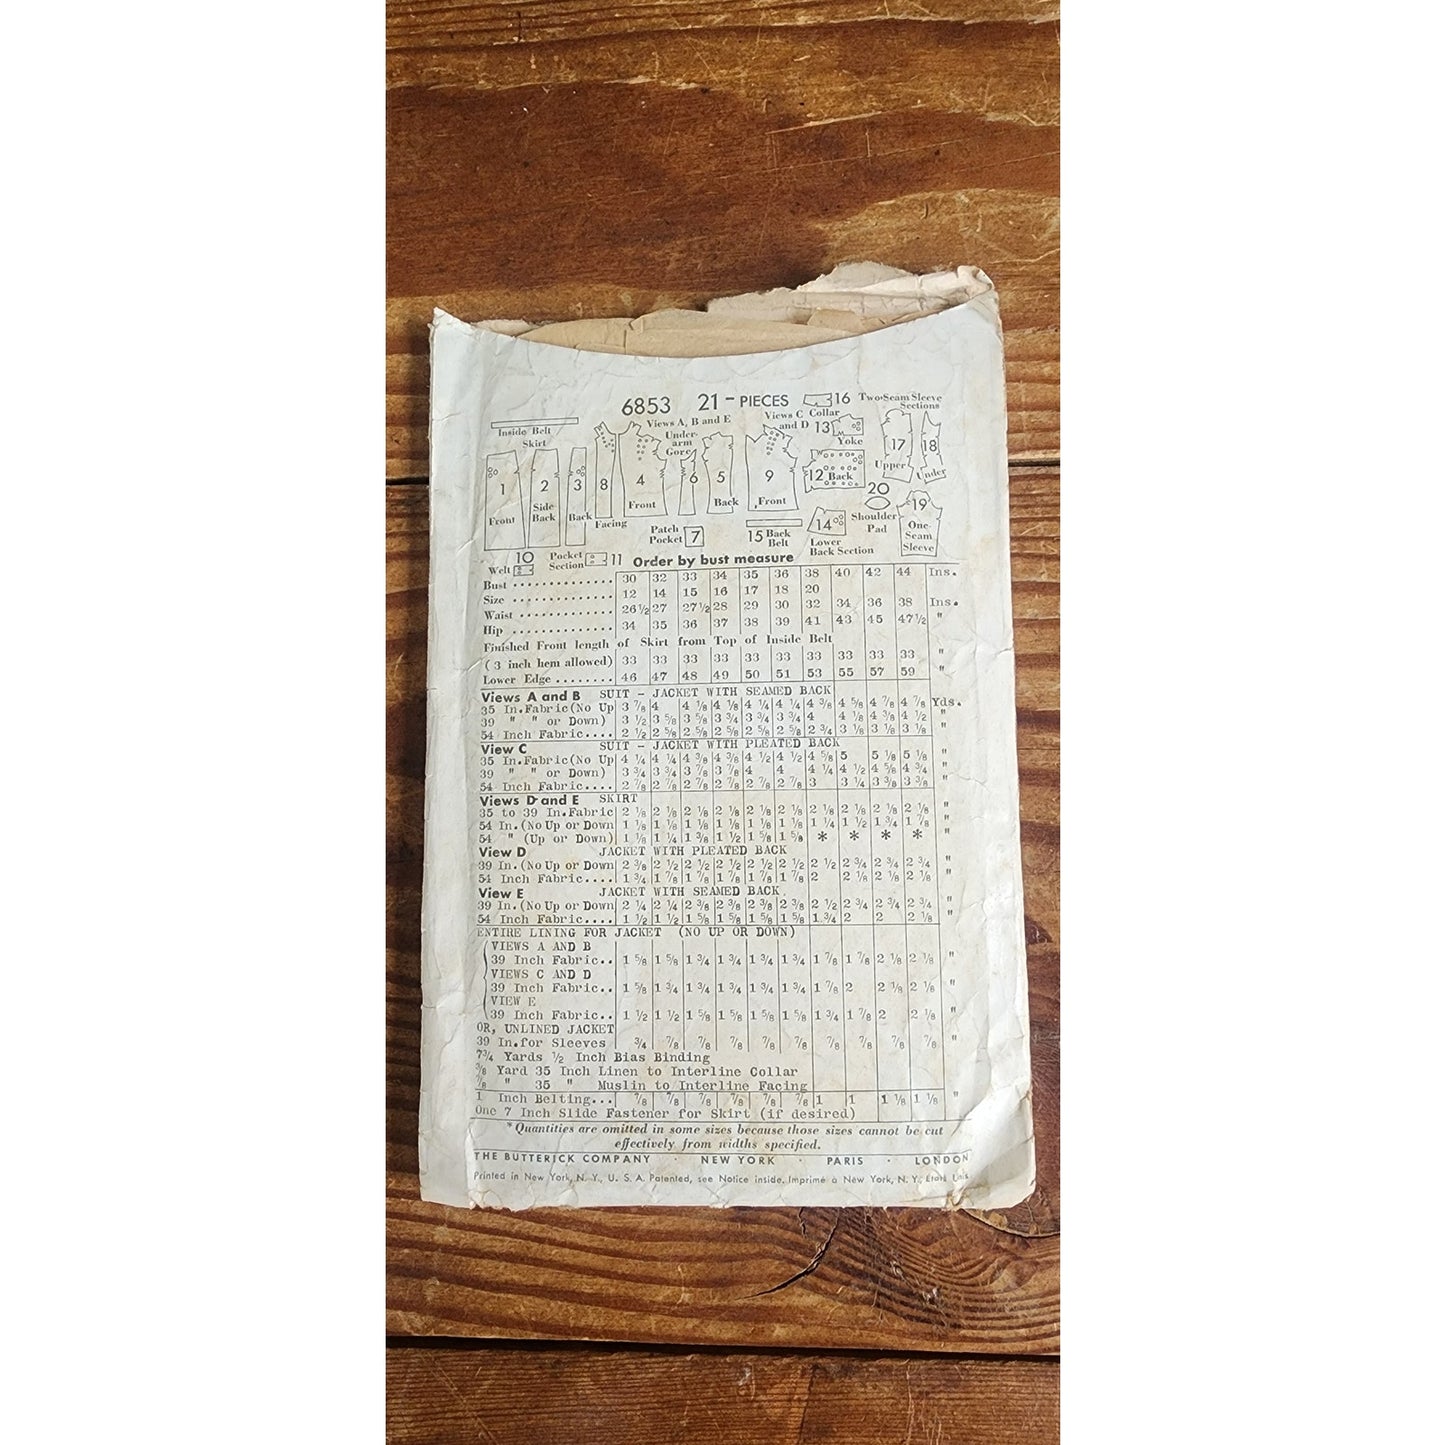 6853 21-PIECES
16 Two-Seam Sleeve Sections
Views A, B and E
Views C and D
Collar
13 Yoke
Inside Belt
Skirt
Under-arm Gore
1 Front
2 Side Back
3 Back
8 Facing
4 Front
6
5 Back
9 Front
12 Back
17 Upper
18 Under
20 Shoulder Pad
19 One-Seam Sleeve
Patch Pocket 7
15 Back Belt
14 Lower Back Section
10 Welt
Pocket Section 11
Order by bust measure
Bust .............. 30 32 33 34 35 36 38 40 42 44 Ins.
Size .............. 12 14 15 16 17 18 20
Waist ............. 26½ 27 27½ 28 29 30 32 34 36 38 Ins.
Hip ............... 34 35 36 37 38 39 41 43 45 47½ "
Finished Front length of Skirt from Top of Inside Belt
(3 inch hem allowed) 33 33 33 33 33 33 33 33 33 33 "
Lower Edge ........ 46 47 48 49 50 51 53 55 57 59 "
Views A and B SUIT - JACKET WITH SEAMED BACK
35 In.Fabric(No Up 3 ⅞ 4 4 ⅛ 4 ⅛ 4 ¼ 4 ¼ 4 ⅜ 4 ⅝ 4 ⅞ 4 ⅞ Yds.
39 " " or Down) 3 ½ 3 ⅝ 3 ⅝ 3 ¾ 3 ¾ 3 ¾ 4 4 ⅛ 4 ⅜ 4 ½ "
54 Inch Fabric.... 2 ½ 2 ⅝ 2 ⅝ 2 ⅝ 2 ⅝ 2 ⅝ 2 ¾ 3 ⅛ 3 ⅛ 3 ⅛ "
View C SUIT - JACKET WITH PLEATED BACK
35 In.Fabric(No Up 4 ¼ 4 ¼ 4 ⅜ 4 ⅜ 4 ½ 4 ½ 4 ⅝ 5 5 ⅛ 5 ⅛ "
39 " " or Down) 3 ¾ 3 ¾ 3 ⅞ 4 4 4 4 ¼ 4 ½ 4 ⅝ 4 ¾ "
54 Inch Fabric.... 2 ⅞ 2 ⅞ 2 ⅞ 2 ⅞ 2 ⅞ 2 ⅞ 3 3 ¼ 3 ⅜ 3 ⅜ "
Views D and E SKIRT
35 to 39 In.Fabric 2 ⅛ 2 ⅛ 2 ⅛ 2 ⅛ 2 ⅛ 2 ⅛ 2 ⅛ 2 ⅛ 2 ⅛ 2 ⅛ "
54 In.(No Up or Down 1 ⅛ 1 ⅛ 1 ⅛ 1 ⅛ 1 ⅛ 1 ⅛ 1 ¼ 1 ½ 1 ¾ 1 ⅞ "
54 " (Up or Down) 1 ⅛ 1 ¼ 1 ⅜ 1 ½ 1 ⅝ 1 ⅝ * * * * "
View D JACKET WITH PLEATED BACK
39 In.(No Up or Down 2 ⅜ 2 ½ 2 ½ 2 ½ 2 ½ 2 ½ 2 ½ 2 ¾ 2 ¾ 2 ¾ "
54 Inch Fabric.... 1 ¾ 1 ⅞ 1 ⅞ 1 ⅞ 1 ⅞ 1 ⅞ 2 2 ⅛ 2 ⅛ 2 ⅛ "
View E JACKET WITH SEAMED BACK
39 In.(No Up or Down 2 ¼ 2 ¼ 2 ⅜ 2 ⅜ 2 ⅜ 2 ⅜ 2 ½ 2 ¾ 2 ¾ 2 ¾ "
54 Inch Fabric.... 1 ½ 1 ½ 1 ⅝ 1 ⅝ 1 ⅝ 1 ⅝ 1 ¾ 2 2 2 ⅛ "
ENTIRE LINING FOR JACKET (NO UP OR DOWN)
VIEWS A AND B
39 Inch Fabric.. 1 ⅝ 1 ⅝ 1 ¾ 1 ¾ 1 ¾ 1 ¾ 1 ⅞ 1 ⅞ 2 ⅛ 2 ⅛ "
VIEWS C AND D
39 Inch Fabric.. 1 ⅝ 1 ¾ 1 ¾ 1 ¾ 1 ¾ 1 ¾ 1 ⅞ 2 2 ⅛ 2 ⅛ "
VIEW E
39 Inch Fabric.. 1 ½ 1 ½ 1 ⅝ 1 ⅝ 1 ⅝ 1 ⅝ 1 ¾ 1 ⅞ 2 2 ⅛ "
OR, UNLINED JACKET
39 In.for Sleeves ¾ ⅞ ⅞ ⅞ ⅞ ⅞ ⅞ ⅞ ⅞ ⅞ "
7¾ Yards ½ Inch Bias Binding
⅜ Yard 35 Inch Linen to Interline Collar
⅞ " 35 " Muslin to Interline Facing
1 Inch Belting... ⅞ ⅞ ⅞ ⅞ ⅞ ⅞ 1 1 1 ⅛ 1 ⅛ "
One 7 Inch Slide Fastener for Skirt (if desired)
*Quantities are omitted in some sizes because those sizes cannot be cut
effectively from widths specified.
THE BUTTERICK COMPANY · NEW YORK · PARIS · LONDON
Printed in New York, N. Y., U. S. A. Patented, see Notice inside. Imprimé à New York, N. Y., Etats Unis